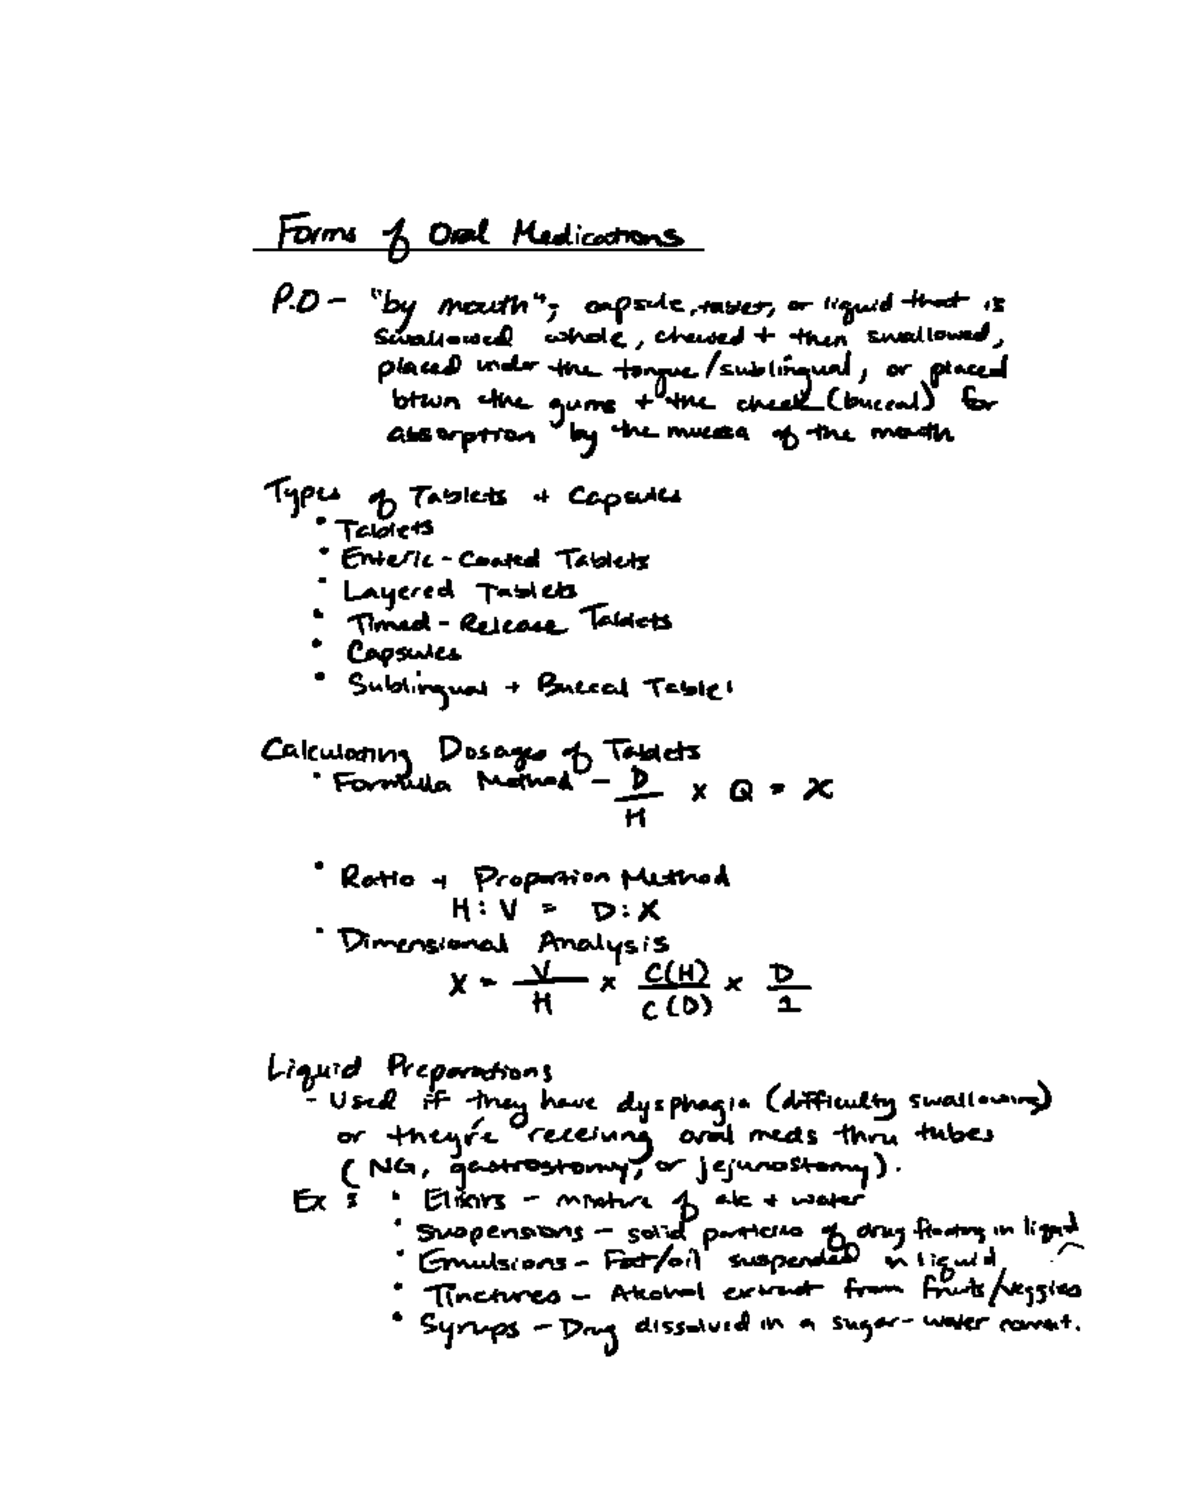 Forms of Oral Medications
P.O - "by mouth"; capsule, tablet, or liquid that is
swallowed whole, chewed + then swallowed,
placed under the tongue/sublingual, or placed
btwn the gums + the cheek (buccal) for
absorption by the mucosa of the mouth
Types of Tablets + Capsules
• Tablets
• Enteric-Coated Tablets
• Layered Tablets
• Timed-Release Tablets
• Capsules
• Sublingual + Buccal Tablet
Calculating Dosages of Tablets
• Formula Method - D/H x Q = X
• Ratio + Proportion Method
H : V = D : X
• Dimensional Analysis
X = V/H x C(H)/C(D) x D/1
Liquid Preparations
- Used if they have dysphagia (difficulty swallowing)
or they're receiving oral meds thru tubes
(NG, gastrostomy, or jejunostomy).
Ex : • Elixirs - mixture of alc + water
• Suspensions - solid particles of drug floating in liquid
• Emulsions - Fat/oil suspended in liquid
• Tinctures - Alcohol extract from fruits/veggies
• Syrups - Drug dissolved in a sugar-water